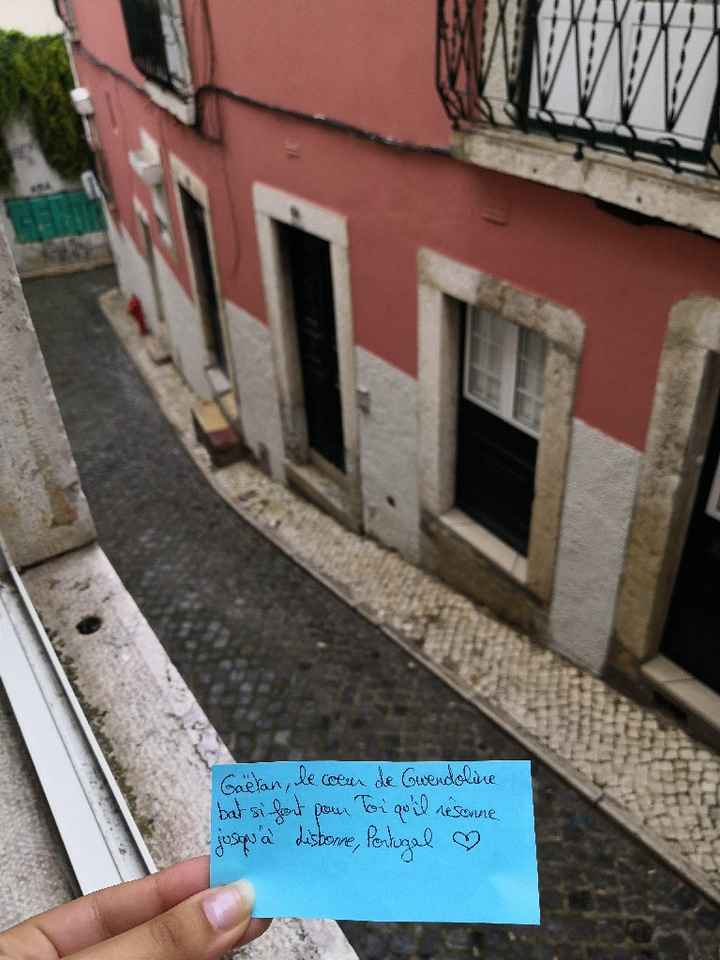 Gaëtan, le coeur de Gwendoline
bat si fort pour Toi qu'il résonne
jusqu'à Lisbonne, Portugal ♡